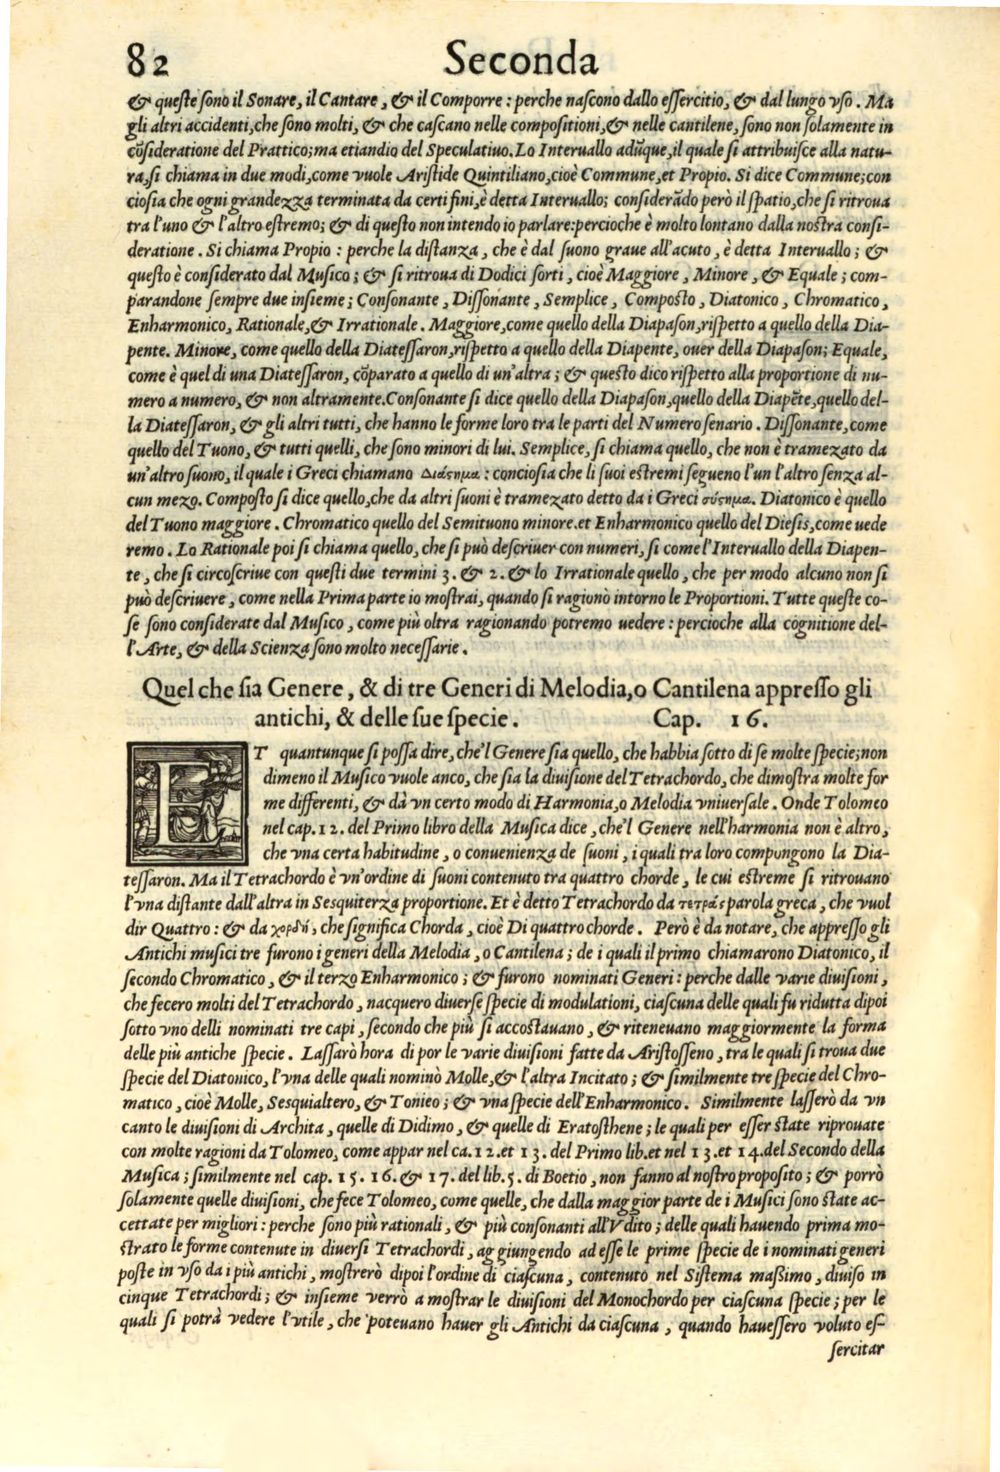 82 Seconda
& queste sono il Sonare, il Cantare, & il Comporre: perche nascono dallo essercitio, & dal lungo vso. Ma
gli altri accidenti, che sono molti, & che cascano nelle compositioni, & nelle cantilene, sono non solamente in
cōsideratione del Prattico; ma etiandio del Speculatiuo. Lo Interuallo adūque, il quale si attribuisce alla natu-
ra, si chiama in due modi, come vuole Aristide Quintiliano, cioè Commune, et Propio. Si dice Commune; con
ciosia che ogni grandezza terminata da certi fini, è detta Interuallo; considerādo però il spatio, che si ritroua
tra l'uno & l'altro estremo; & di questo non intendo io parlare: percioche è molto lontano dalla nostra consi-
deratione. Si chiama Propio: perche la distanza, che è dal suono graue all'acuto, è detta Interuallo; &
questo è considerato dal Musico; & si ritroua di Dodici sorti, cioè Maggiore, Minore, & Equale; com-
parandone sempre due insieme; Consonante, Dissonante, Semplice, Composto, Diatonico, Chromatico,
Enharmonico, Rationale, & Irrationale. Maggiore, come quello della Diapason, rispetto a quello della Dia-
pente. Minore, come quello della Diatessaron, rispetto a quello della Diapente, ouer della Diapason; Equale,
come è quel di una Diatessaron, cōparato a quello di un'altra; & questo dico rispetto alla proportione di nu-
mero a numero, & non altramente. Consonante si dice quello della Diapason, quello della Diapēte, quello del-
la Diatessaron, & gli altri tutti, che hanno le forme loro tra le parti del Numero senario. Dissonante, come
quello del Tuono, & tutti quelli, che sono minori di lui. Semplice, si chiama quello, che non è tramezato da
un'altro suono, il quale i Greci chiamano Διάςημα: conciosia che li suoi estremi segueno l'un l'altro senza al-
cun mezo. Composto si dice quello, che da altri suoni è tramezato detto da i Greci σύςημα. Diatonico è quello
del Tuono maggiore. Chromatico quello del Semituono minore. et Enharmonico quello del Diesis, come uede
remo. Lo Rationale poi si chiama quello, che si può descriuer con numeri, si come l'Interuallo della Diapen-
te, che si circoscriue con questi due termini 3. & 2. & lo Irrationale quello, che per modo alcuno non si
può descriuere, come nella Prima parte io mostrai, quando si ragionò intorno le Proportioni. Tutte queste co-
se sono considerate dal Musico, come più oltra ragionando potremo uedere: percioche alla cognitione del-
l'Arte, & della Scienza sono molto necessarie.
Quel che sia Genere, & di tre Generi di Melodia, o Cantilena appresso gli
antichi, & delle sue specie. Cap. 16.
ET quantunque si possa dire, che'l Genere sia quello, che habbia sotto di se molte specie; non
dimeno il Musico vuole anco, che sia la diuisione del Tetrachordo, che dimostra molte for
me differenti, & dà vn certo modo di Harmonia, o Melodia vniuersale. Onde Tolomeo
nel cap. 12. del Primo libro della Musica dice, che'l Genere nell'harmonia non è altro,
che vna certa habitudine, o conuenienza de suoni, i quali tra loro compongono la Dia-
tessaron. Ma il Tetrachordo è vn'ordine di suoni contenuto tra quattro chorde, le cui estreme si ritrouano
l'vna distante dall'altra in Sesquiterza proportione. Et è detto Tetrachordo da τετράς parola greca, che vuol
dir Quattro: & da χορδὴ, che significa Chorda, cioè Di quattro chorde. Però è da notare, che appresso gli
Antichi musici tre furono i generi della Melodia, o Cantilena; de i quali il primo chiamarono Diatonico, il
secondo Chromatico, & il terzo Enharmonico; & furono nominati Generi: perche dalle varie diuisioni,
che fecero molti del Tetrachordo, nacquero diuerse specie di modulationi, ciascuna delle quali fu ridutta dipoi
sotto vno delli nominati tre capi, secondo che più si accostauano, & riteneuano maggiormente la forma
delle più antiche specie. Lassarò hora di por le varie diuisioni fatte da Aristosseno, tra le quali si troua due
specie del Diatonico, l'vna delle quali nominò Molle, & l'altra Incitato; & similmente tre specie del Chro-
matico, cioè Molle, Sesquialtero, & Tonieo; & vna specie dell'Enharmonico. Similmente lasserò da vn
canto le diuisioni di Archita, quelle di Didimo, & quelle di Eratosthene; le quali per esser state riprouate
con molte ragioni da Tolomeo, come appar nel ca. 12. et 13. del Primo lib. et nel 13. et 14. del Secondo della
Musica; similmente nel cap. 15. 16. & 17. del lib. 5. di Boetio, non fanno al nostro proposito; & porrò
solamente quelle diuisioni, che fece Tolomeo, come quelle, che dalla maggior parte de i Musici sono state ac-
cettate per migliori: perche sono più rationali, & più consonanti all'Vdito; delle quali hauendo prima mo-
strato le forme contenute in diuersi Tetrachordi, aggiungendo ad esse le prime specie de i nominati generi
poste in vso da i più antichi, mostrerò dipoi l'ordine di ciascuna, contenuto nel Sistema massimo, diuiso in
cinque Tetrachordi; & insieme verrò a mostrar le diuisioni del Monochordo per ciascuna specie; per le
quali si potrà vedere l'vtile, che poteuano hauer gli Antichi da ciascuna, quando hauessero voluto es-
sercitar